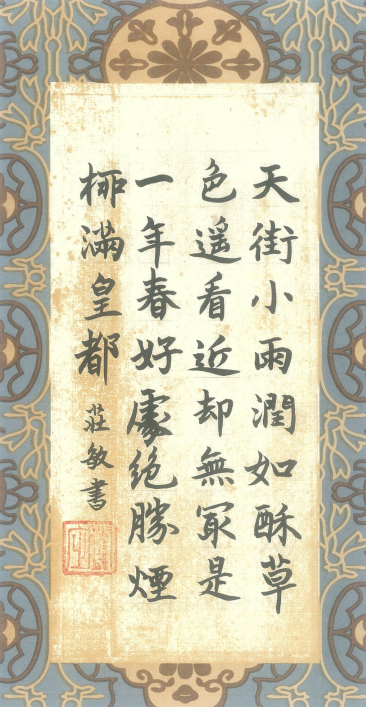 天街小雨潤如酥草
色遥看近却無冣是
一年春好處絶勝煙
栁滿皇都
莊敏書